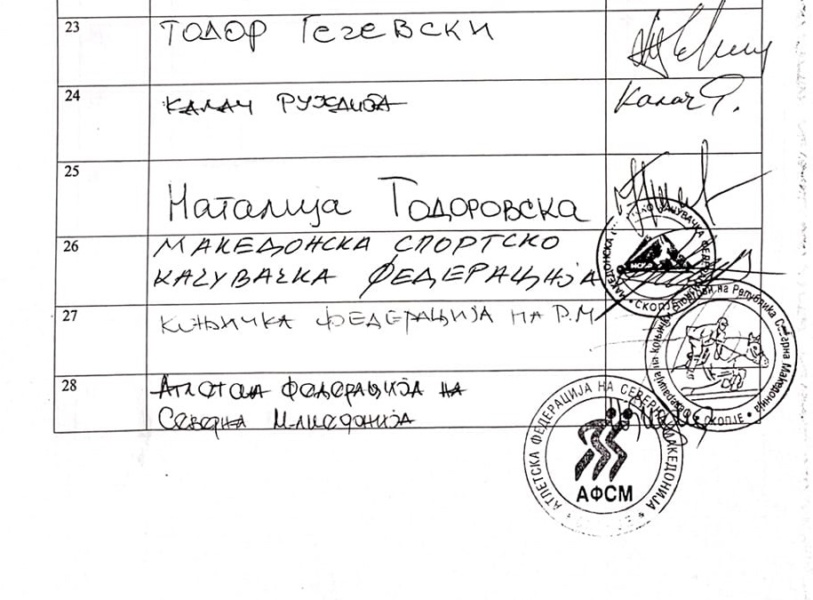 23 ТОДОР ГЕГЕВСКИ
24 КАЛАЧ РУЖДИЈА Калач Р.
25 Наталија Тодоровска
26 МАКЕДОНСКА СПОРТСКО
КАЧУВАЧКА ФЕДЕРАЦИЈА
МАКЕДОНСКА КАЧУВАЧКА ФЕДЕРАЦИЈА • СКОПЈЕ •
27 КОЊИЧКА ФЕДЕРАЦИЈА НА Р.М
Федерација на коњички спортови на Република Северна Македонија • СКОПЈЕ •
28 Атлетска федерација на
Северна Македонија
АТЛЕТСКА ФЕДЕРАЦИЈА НА СЕВЕРНА МАКЕДОНИЈА
АФСМ